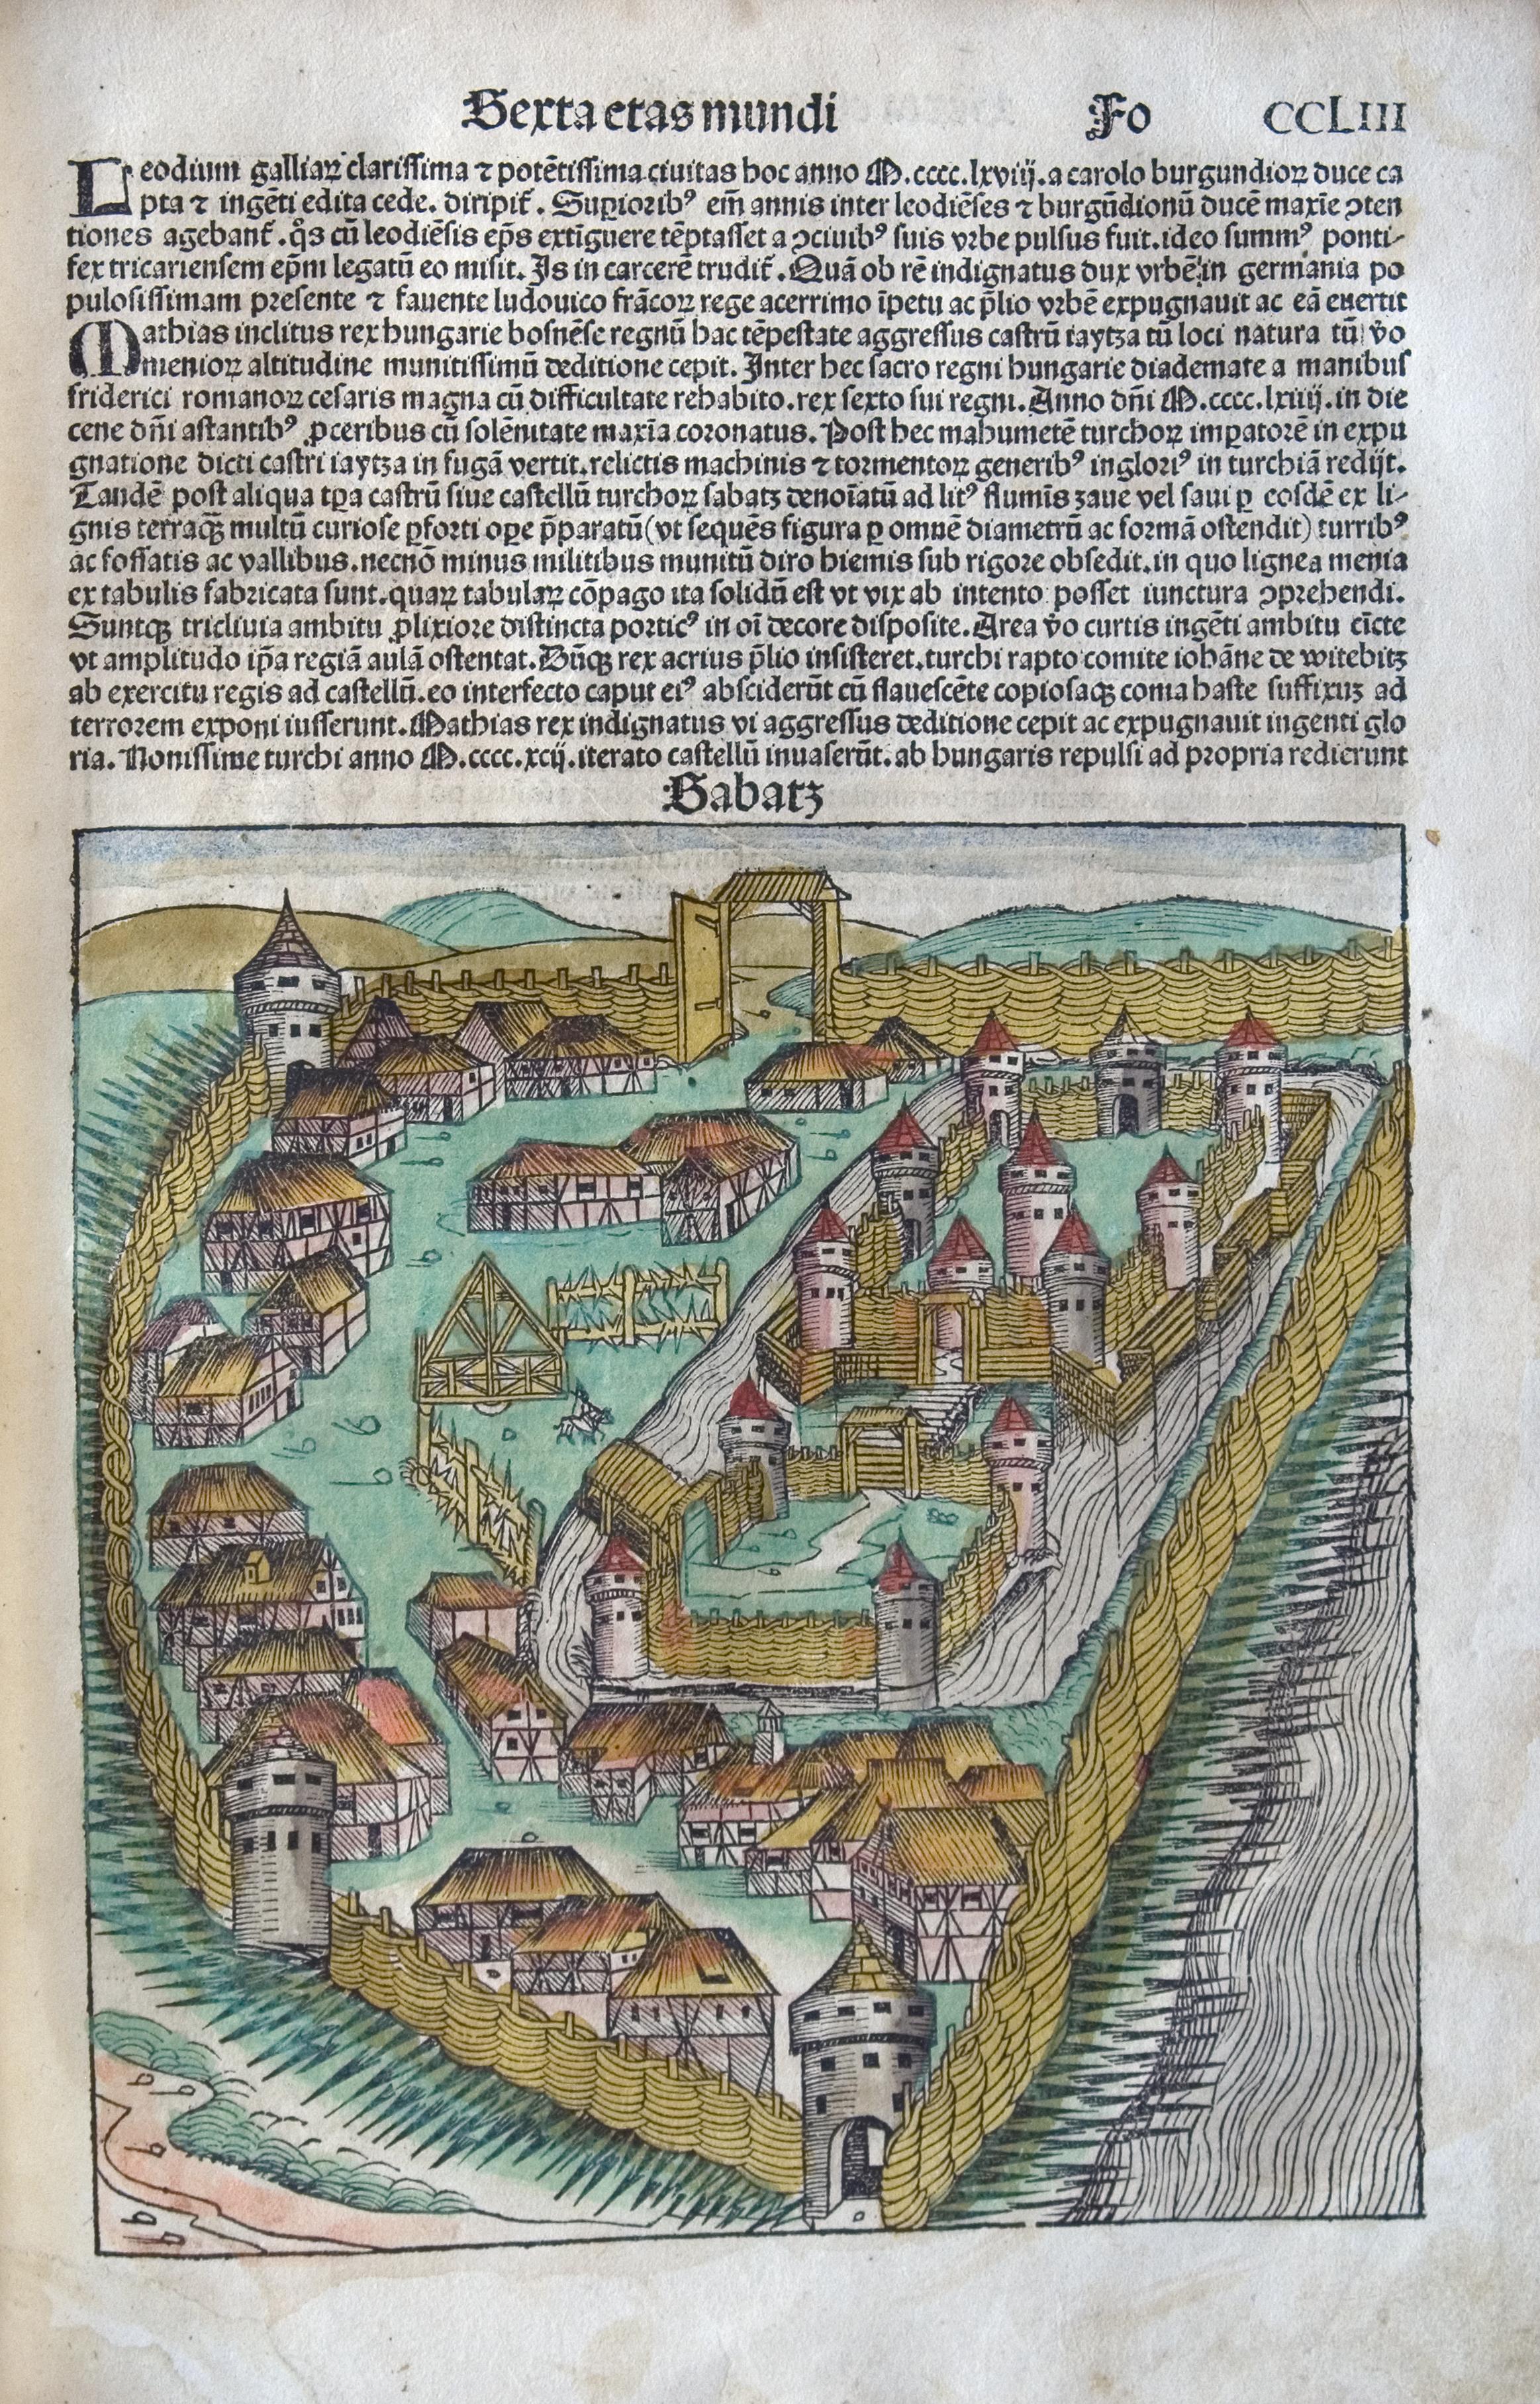 Sexta etas mundi Fo CCLIII
Leodium galliaꝝ clarissima ⁊ potētissima ciuitas hoc anno M.cccc.lxviij. a carolo burgundioꝝ duce ca
pta ⁊ ingēti edita cede. diripit̄. Suꝑioribꝰ em̄ annis inter leodiēses ⁊ burgūdionū ducē maxīe ꝯten
tiones agebant̄. q̊s cū leodiēsis ep̄s extīguere tēptasset a ꝯciuibꝰ suis vrbe pulsus fuit. ideo summꝰ ponti-
fex tricariensem ep̄m legatū eo misit. Is in carcerē trudit̄. Quā ob rē indignatus dux vrbē in germania po
pulosissimam presente ⁊ fauente ludouico frācoꝝ rege acerrimo īpetu ac p̄lio vrbē expugnauit ac eā euertit
Mathias inclitus rex hungarie bosnēse regnū hac tēpestate aggressus castrū iaytza tū loci natura tū v̄o
menioꝝ altitudine munitissimū deditione cepit. Inter hec sacro regni hungarie diademate a manibus
friderici romanoꝝ cesaris magna cū difficultate rehabito. rex sexto sui regni. Anno dn̄i M.cccc.lxiiij. in die
cene dn̄i astantibꝰ ꝓceribus cū solēnitate maxīa coronatus. Post hec mahumetē turchoꝝ imꝑatorē in expu
gnatione dicti castri iaytza in fugā vertit. relictis machinis ⁊ tormentoꝝ generibꝰ inglorıꝰ in turchiā redijt.
Tandē post aliqua tꝑa castrū siue castellū turchoꝝ sabatz denoīatū ad litꝰ flumīs zaue vel saui ꝑ eosdē ex li-
gnis terraqꝫ multū curiose ꝑforti oꝑe p̄paratū (vt sequēs figura ꝑ omnē diametrū ac formā ostendit) turribꝰ
ac fossatis ac vallibus. necnō minus militibus munitū diro hiemis sub rigore obsedit. in quo lignea menia
ex tabulis fabricata sunt. quaꝝ tabulaꝝ cōpago ita solidū est vt vix ab intento posset iunctura ꝯprehendi.
Suntqꝫ tricliuia ambitu ꝓlixiore distincta porticꝰ in oī decore disposite. Area v̄o curtis ingēti ambitu cīcte
vt amplitudo ip̄a regiā aulā ostentat. Dūqꝫ rex acrius p̄lio insisteret. turchi rapto comite iohāne de witebitz
ab exercitu regis ad castellū. eo interfecto caput eiꝰ absciderūt cū flauescēte copiosaqꝫ coma haste suffixuꝫ ad
terrorem exponi iusserunt. Mathias rex indignatus vi aggressus deditione cepit ac expugnauit ingenti glo
ria. Nouissime turchi anno M.cccc.xcij. iterato castellū inuaserūt. ab hungaris repulsi ad propria redierunt
Sabatz